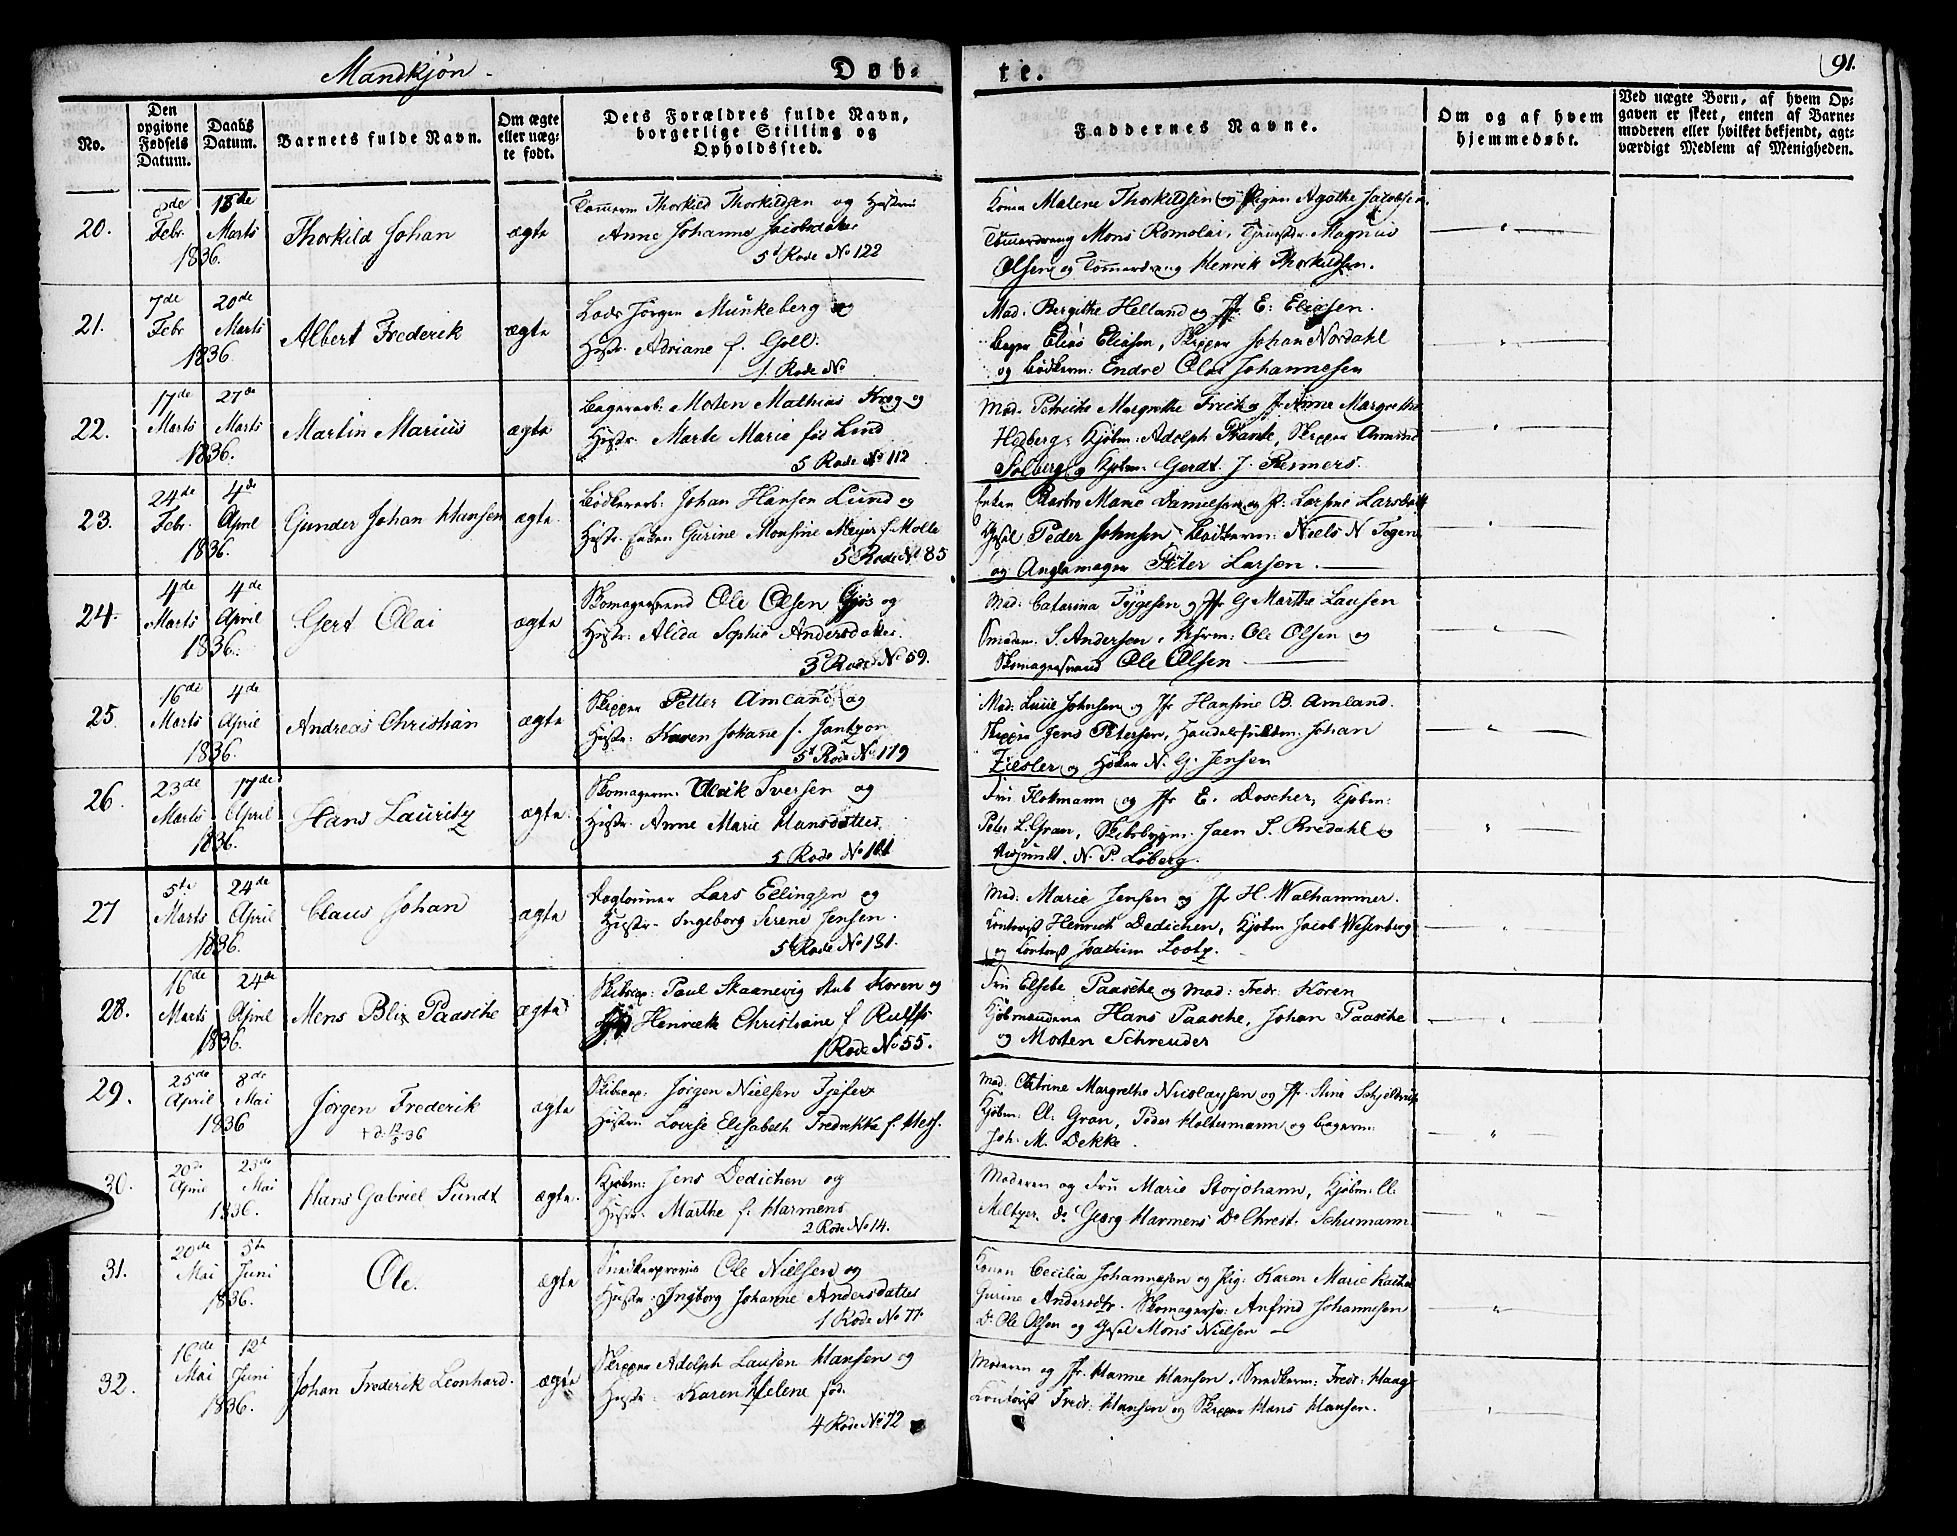 Mandkjøn.
Døb-
te.
91.
No.
Den opgivne Fødsels Datum.
Daabs Datum.
Barnets fulde Navn.
Om ægte eller uægte født.
Dets Forældres fulde Navn, borgerlige Stilling og Opholdssted.
Faddernes Navne.
Om og af hvem hjemmedøbt.
Ved uægte Børn, af hvem Opgaven er skeet, enten af Barnemoderen eller hvilket bekjendt, agtværdigt Medlem af Menigheden.
20.
8de Febr
18de Marts
1836.
Thorkild Johan
ægte
Thorkild Thorkildsen og Hustru
Anne Johanne Jacobsdatter
5t Rode No 122
Konen Malene Thorkildsen og Pigen Agathe Jacobsen
Mons Romolai, Magnus
Olsen og Henrik Thorkildsen.
21.
7de Febr
20de Marts
1836
Albert Frederik
ægte
Lods Jørgen Munkeberg og
Hustr. Adriane f. Goll.
1 Rode No
Mad: Bergithe Helland og Jfr E: Eliasen.
Elias Eliasen, Skipper Johan Nordahl
og Bødkerm: Endre Olai Johannesen
22.
17de Marts
27de Marts
1836.
Martin Marius
ægte
Bagerarb: Morten Mathias Krog og
Hustr. Marte Marie fød Lind
5 Rode No 112
Mad. Petricke Margrethe Frich og Jfr Anna Margrethe
Hedberg; Kjøbm: Adolph Skipper
Solberg og Kjøbm: Gerdt J. Reimers.
23.
24de Febr.
4de April
1836.
Gunder Johan Hansen
ægte
Bødkerarb: Johan Hansen Lund og
Hustr. Enken Gurine Monsine Meyer f. Molle
5 Rode No 85
Enken Marie Danielsen og Larsdatt
Peder Johnsen, Bødkerm: Niels N.
og Peter Larsen.
24.
4de Marts
4de April
1836.
Gert Olai
ægte
Skomagersvend Ole Olsen og
Hustr: Alida Sophie Andersdatter.
3 Rode No 59.
Mad: Catarina Tygesen og Jfr G Marthe Lausen
S. Andersen, Ole Olsen og
Skomagersvend Ole Olsen
25.
16de Marts
4de April
1836
Andreas Christian
ægte
Skipper Petter Amland og
Hustr: Karen Johane f. Jantzon
5t Rode No 119
Mad: Johnsen og Jfr Hansine B. Amland.
Skipper Jens Petersen, Handelsfuldtm: Johan
Ziesler og Høker N. G. Jensen
26.
23de Marts
17de April
1836.
Hans Lauritz
ægte
Skomagerm: Ulrik Iversen og
Hustr. Anne Marie Hansdatter.
5 Rode No 101
Fru Flokmann og Jfr E. Doscher, Kjøbm:
Peter L. Gran, Skibsbygm. Jaen S. Bredahl og
N. P. Løberg.
27
5te Marts
24de April
1836.
Claus Johan
ægte
Dagleiner Lars Ellingsen og
Hustr. Ingeborg Serene Jensen.
5t Rode No 131.
Mad: Marie Jensen og Jfr H. Walhammer.
Contorist Henrich Dedichen, Kjøbm Jacob Wesenberg
og Contorist Joachim Lootz.
28.
16de Marts
24de April
1836.
Mens Blix Paasche
ægte
Skibscap: Paul Skaanevig Stub Koren og
Henriette Christiane f Rulffs
1 Rode No 55.
Fru Elsebe Paasche og Mad: Fredr: Koren
Kjøbmændene Hans Paasche, Johan Paasche
og Morten Schreuder
29.
25de April
8de Mai
1836
Jørgen Frederik
+ d: 12/5 36
ægte
Skibscap: Jørgen Nielsen
Hustru: Lovise Elisabeth Fredrikke f. Mess.
Mad. Catrine Margrethe Nicolaysen og Jfr. Stine Schjelderup
Kjøbm: Cl. Gran, Peder Holtermann og Bagerm:
Joh. M. Dekke.
30.
20de April
23de Mai
1836.
Hans Gabriel Sundt
ægte.
Kjøbm: Jens Dedichen og
Hustr. Marthe f. Harmens
2 Rode No 14.
Moderen og Fru Marie Storjohann, Kjøbm: Cl.
Meltzer, Do Georg Harmens Do Christ. Schumann.
31.
20de Mai
5te Juni
1836.
Ole.
ægte
Ole Nielsen og
Hustr: Ingborg Johanne Andersdatter
1 Rode No 77.
Konen Cecilia Johannesen og Pig: Karen Marie
Gurine Andersdtr. Skomagersv: Anfind Johannesen
Do Ole Olsen og Mons Nielsen
32.
16de Mai
12te Juni
1836.
Johan Frederik Leonhard.
ægte
Skipper Adolph Lausen Hansen og
Hustr: Karen Helene fød
4 Rode No 72
Moderen og Jfr. Hanne Hansen, Snedkerm: Fredr: Haag
Contorist Fredr: Hansen og Skipper Hans Hansen.